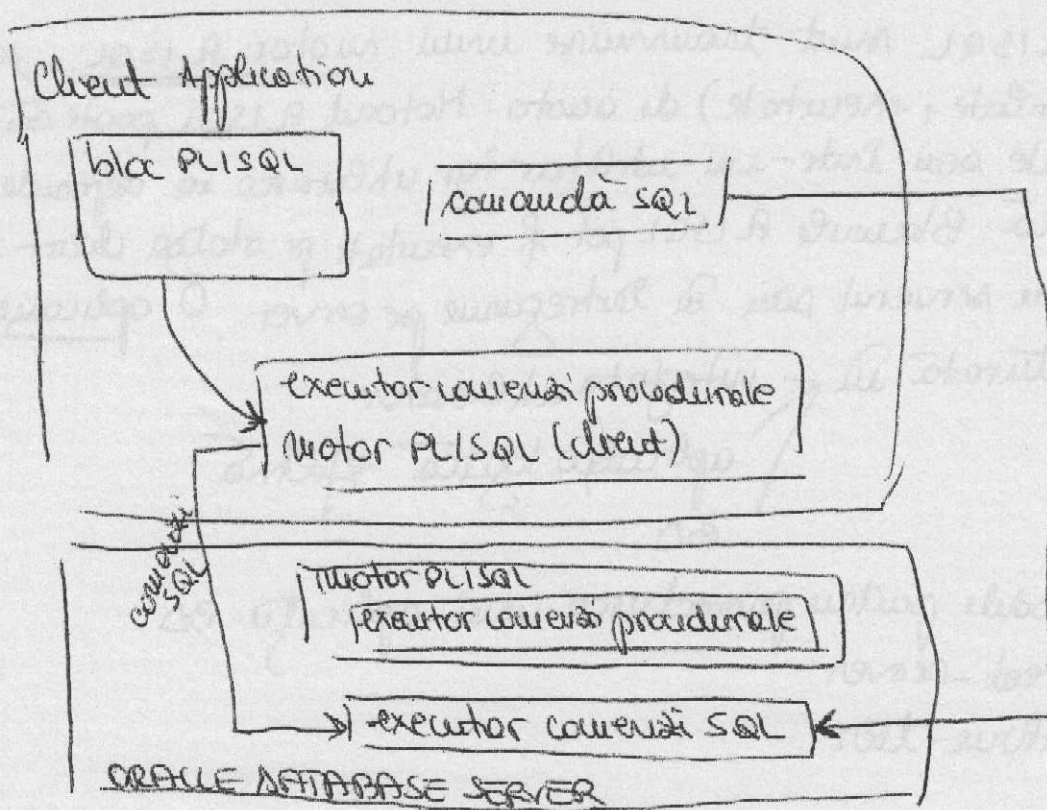 Client Application
bloc PL/SQL
comandă SQL
executor comenzi procedurale
Motor PL/SQL (client)
comenzi
SQL
Motor PL/SQL
executor comenzi procedurale
executor comenzi SQL
ORACLE DATABASE SERVER